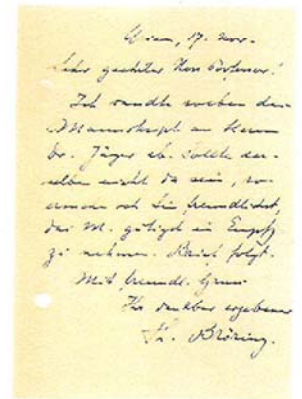 Wien, 17. Nov.
Sehr geehrter Herr Professor!
Ich sandte soeben das
Manuskript an Herrn
Dr. Jäger ab. Sollte der-
selbe nicht da sein, so
Sie freundlichst,
das M. gütigst in Empfg
zu nehmen. Brief folgt.
Mit freundl. Gruss
Ihr dankbar ergebener
Th. Bröring.